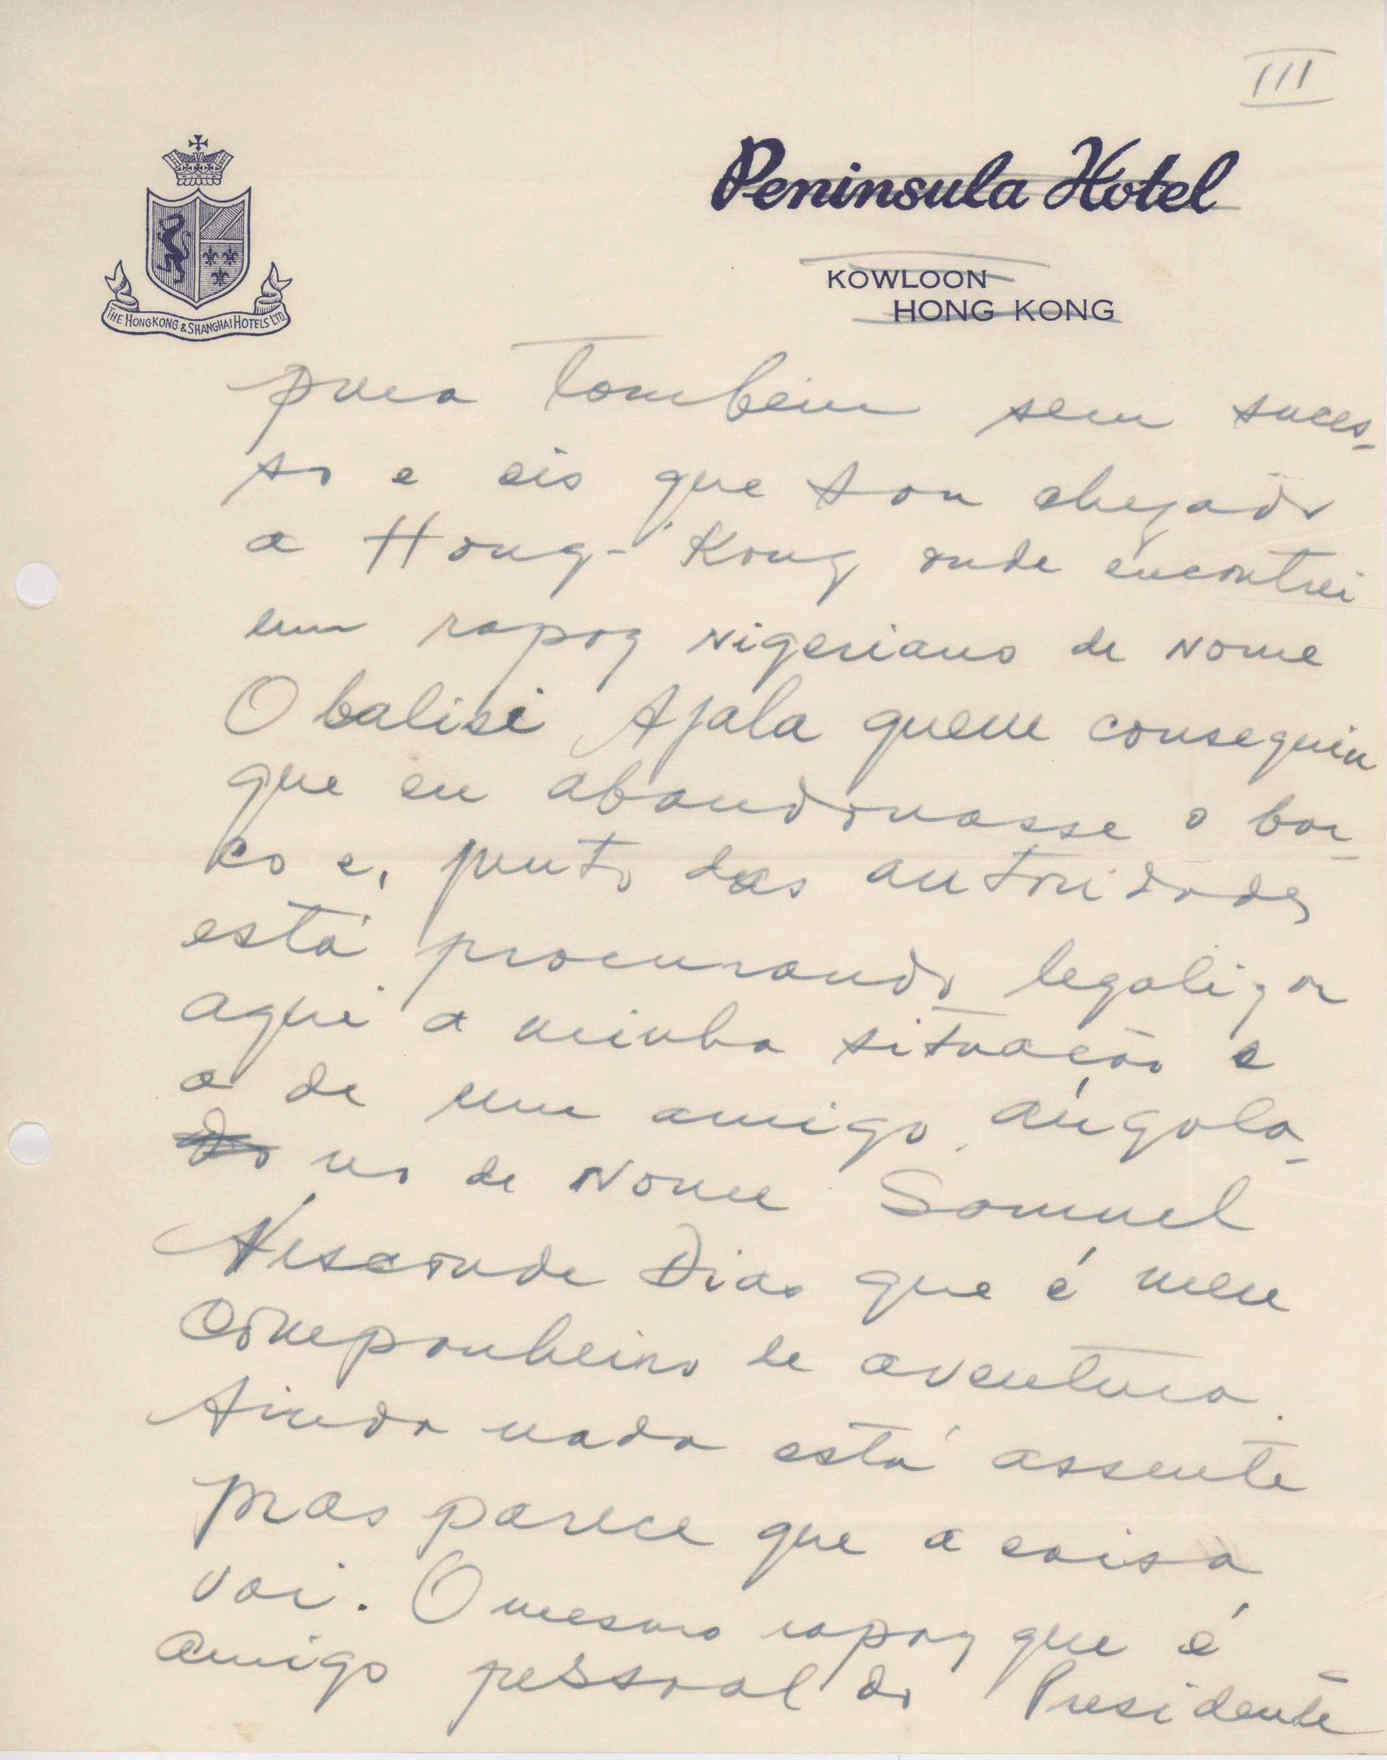 III
Peninsula Hotel
KOWLOON
HONG KONG
THE HONGKONG & SHANGHAI HOTELS LTD
pura tambem sem suces-
so e eis que sou chegado
a Hong-Kong onde encontrei
um rapaz nigeriano de nome
Obalisi Ajala quem conseguiu
que eu abandonasse o bar-
co e, junto das autoridades
está procurando legalizar
aqui a minha situação e
a de um amigo angola-
no de nome Samuel
Visconde Dias que é meu
companheiro de aventura.
Ainda nada está assente
mas parece que a coisa
vai. O mesmo rapaz que é
amigo pessoal do Presidente